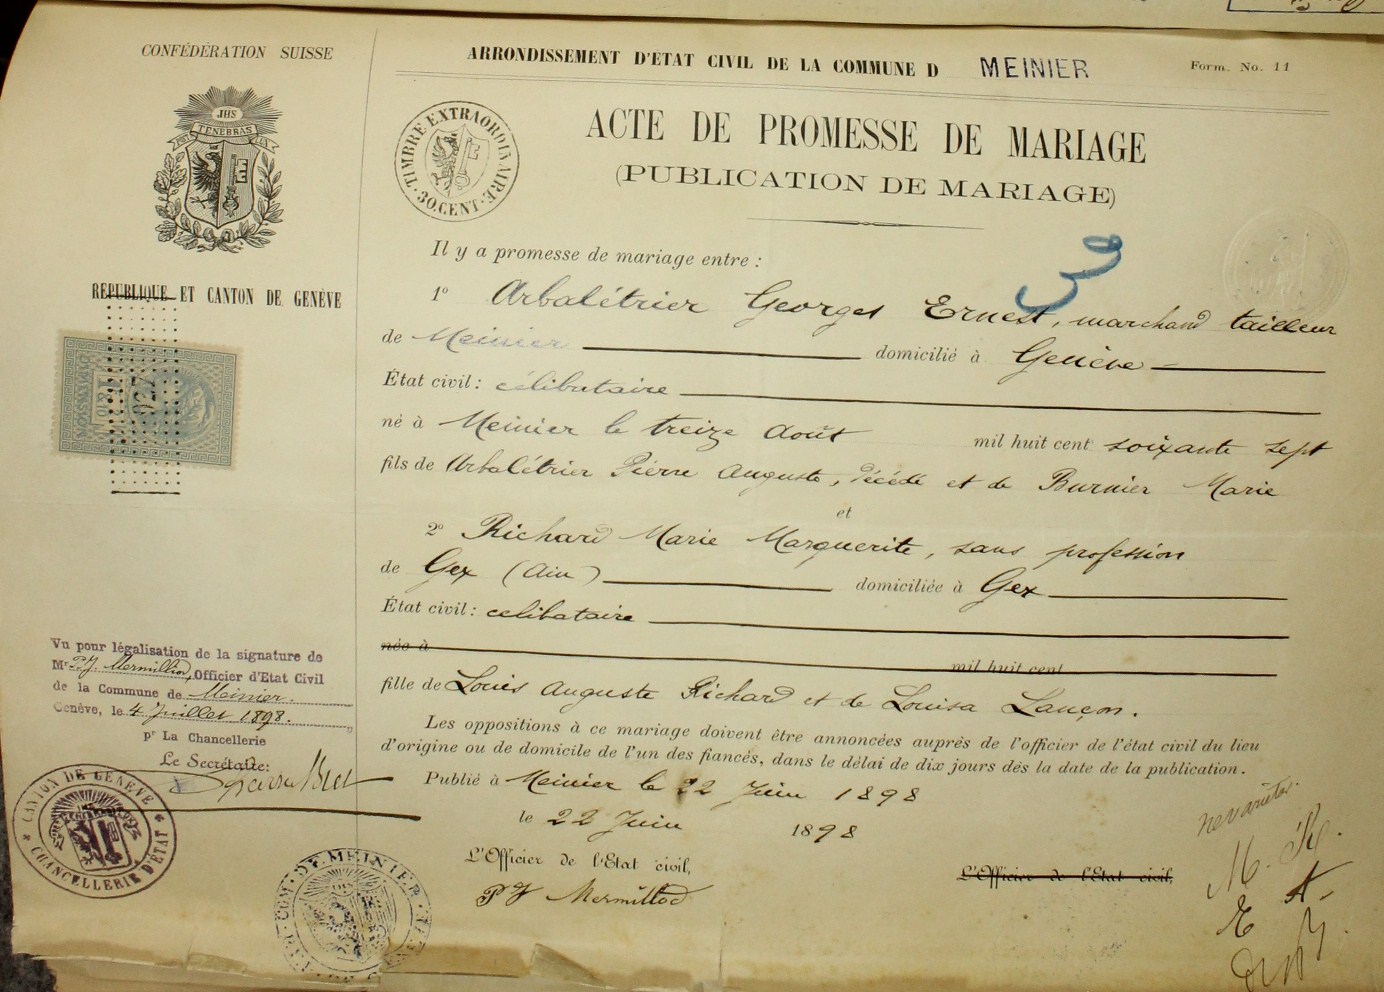 CONFÉDÉRATION SUISSE
JHS
POST TENEBRAS LUX
REPUBLIQUE ET CANTON DE GENÈVE
DIMENSION
ARRONDISSEMENT D'ÉTAT CIVIL DE LA COMMUNE D MEINIER
Form. No. 11
TIMBRE EXTRAORDINAIRE
30 CENT.
ACTE DE PROMESSE DE MARIAGE
(PUBLICATION DE MARIAGE)
3
Il y a promesse de mariage entre :
1º Arbalétrier Georges Ernest, marchand tailleur
de Meinier domicilié à Genève
État civil : célibataire
né à Meinier le treize Août mil huit cent soixante sept
fils de Arbalétrier Pierre Auguste, décédé et de Burnier Marie
et
2º Richard Marie Marguerite, sans profession
de Gex (Ain) domiciliée à Gex
État civil : celibataire
née à mil huit cent
fille de Louis Auguste Richard et de Louisa Lançon.
Les oppositions à ce mariage doivent être annoncées auprès de l'officier de l'état civil du lieu
d'origine ou de domicile de l'un des fiancés, dans le délai de dix jours dès la date de la publication.
Publié à Meinier le 22 Juin 1898
le 22 Juin 1898
L'Officier de l'Etat civil,
P J Mermillod
L'Officier de l'Etat civil,
Vu pour légalisation de la signature de
Mr P. J. Mermillod, Officier d'Etat Civil
de la Commune de Meinier.
Genève, le 4 Juillet 1898.
pr La Chancellerie
Le Secrétaire:
CANTON DE GENÈVE
CHANCELLERIE D'ÉTAT
COM. DE MEINIER
ne varietur.
M. R.
A.
E